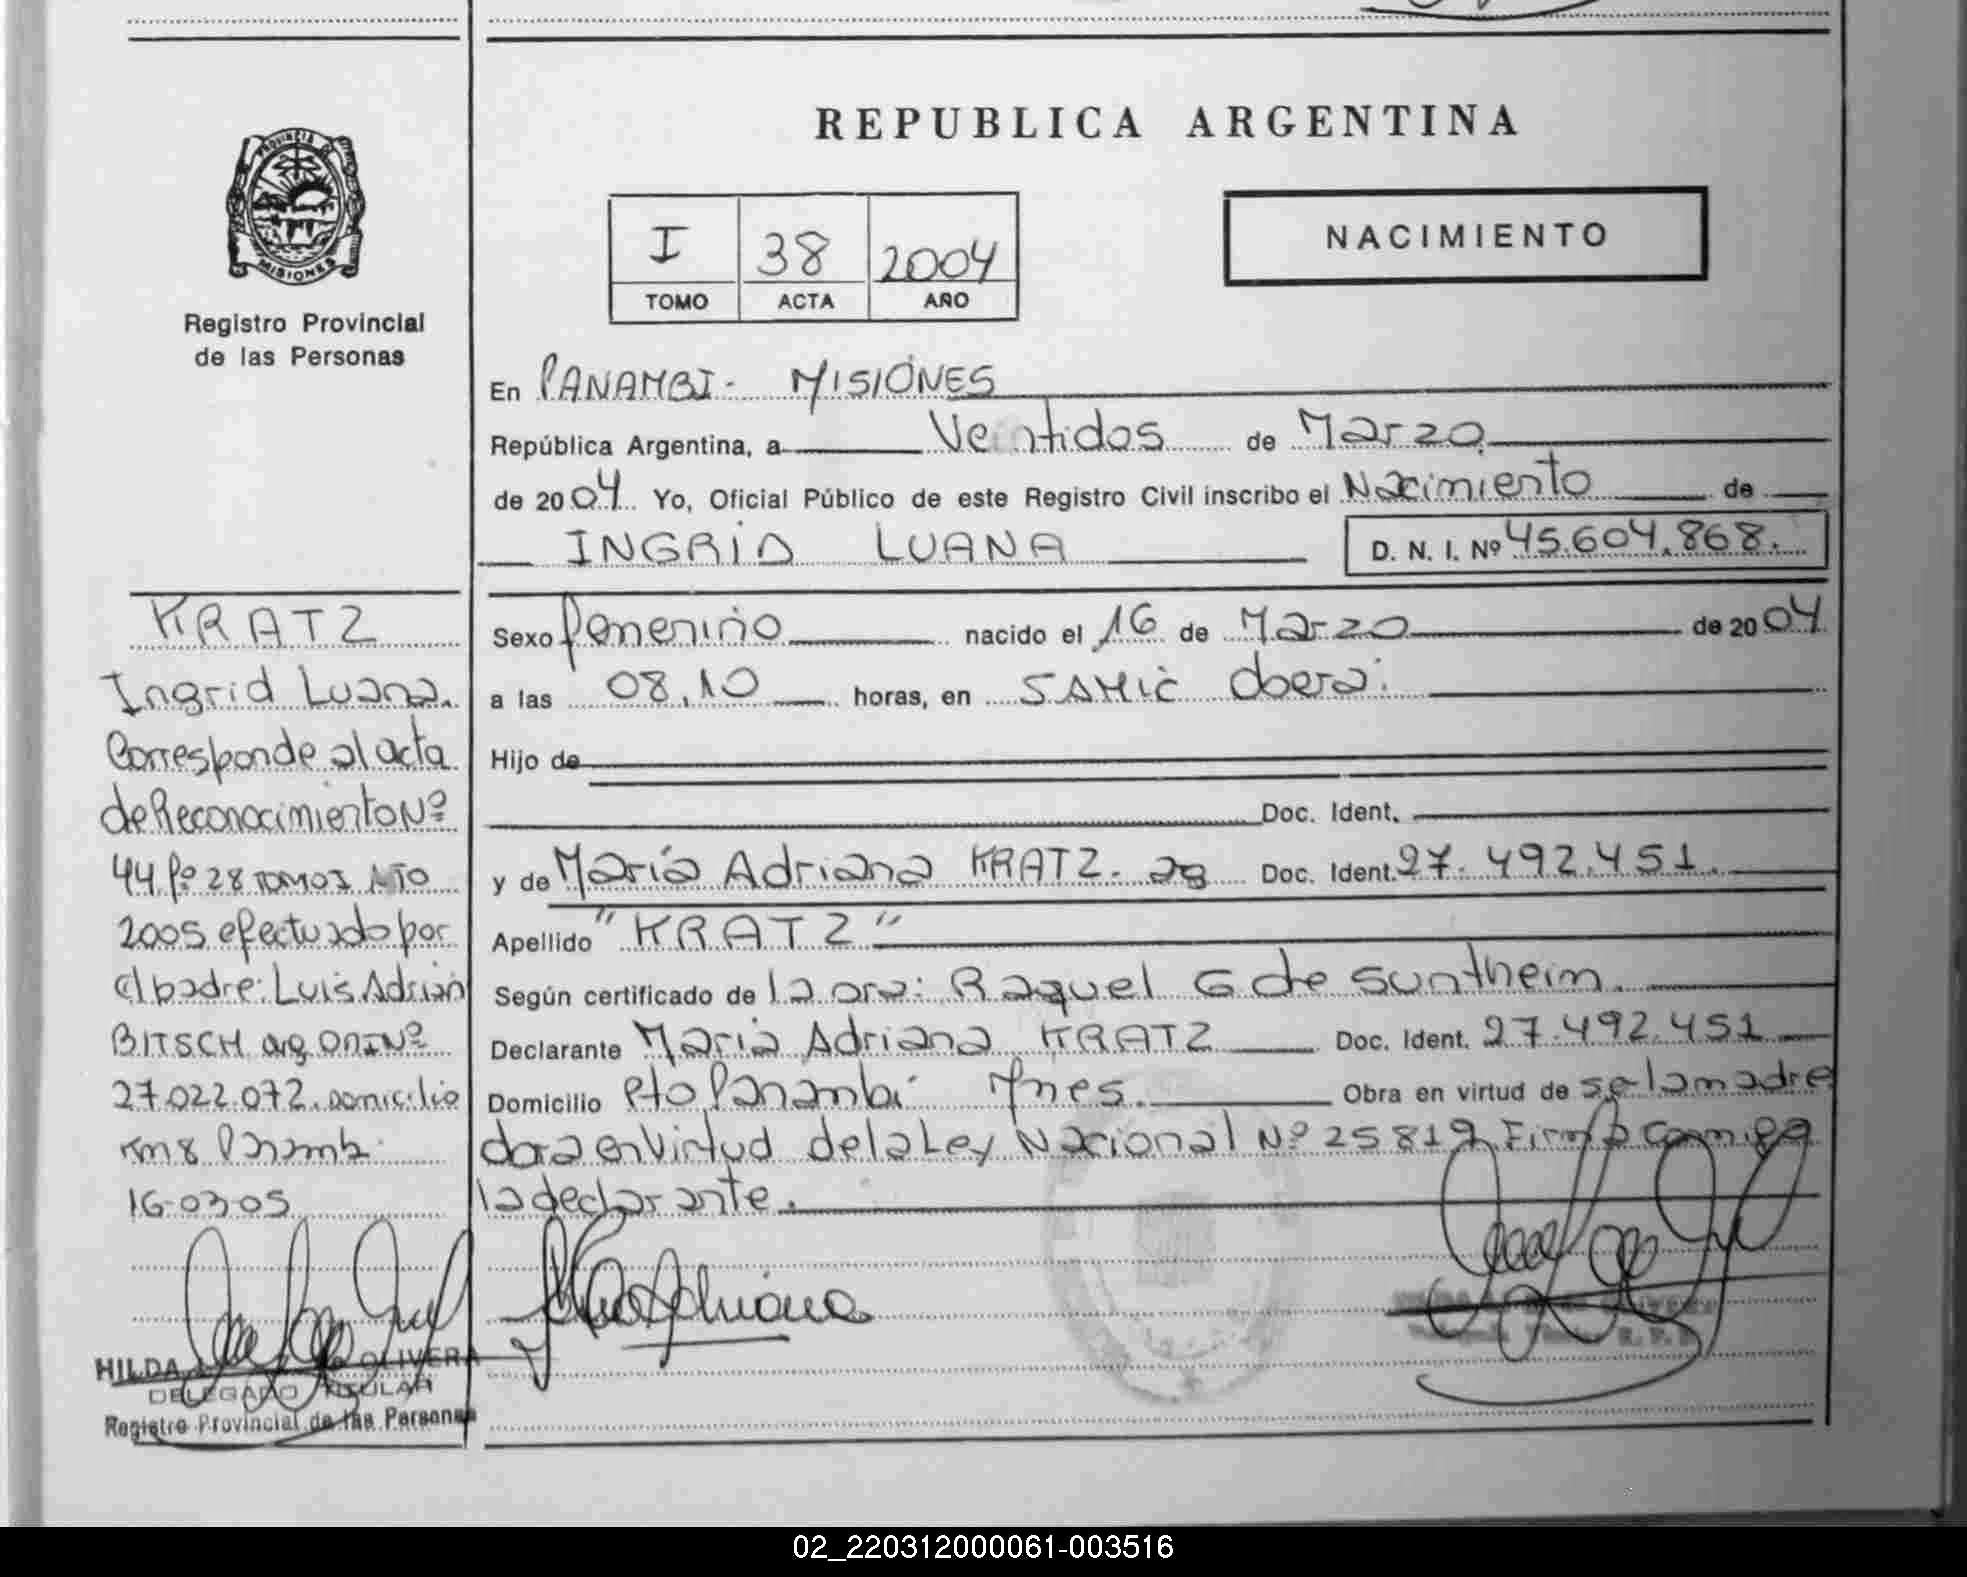 REPUBLICA ARGENTINA
PROVINCIA DE
MISIONES
Registro Provincial
de las Personas
I 38 2004
TOMO ACTA AÑO
NACIMIENTO
En PANAMBI - MISIONES
República Argentina, a Veintidos de Marzo
de 2004 Yo, Oficial Público de este Registro Civil inscribo el Nacimiento de
INGRID LUANA D. N. I. Nº 45.604.868.
Sexo femenino nacido el 16 de Marzo de 2004
a las 08.10 horas, en SAMIC Oberá.
Hijo de
Doc. Ident.
y de María Adriana KRATZ. Doc. Ident. 27.492.451.
Apellido "KRATZ"
Según certificado de la Dra: Raquel G de Suntheim.
Declarante María Adriana KRATZ Doc. Ident. 27.492.451
Domicilio Pto Panambí Mnes. Obra en virtud de ser la madre
dora en Virtud de la Ley Nacional Nº 25819 Firma conmigo
la declarante.
KRATZ
Ingrid Luana.
Corresponde al acta
de Reconocimiento Nº
44 fº 28 TOMO I AÑO
2005 efectuado por
el padre: Luis Adrián
BITSCH arg DNI Nº
27.022.072. domicilio
Km 8 Panambí
16-03-05
HILDA OLIVERA
DELEGADO TITULAR
Registro Provincial de las Personas
Adriana
02_220312000061-003516